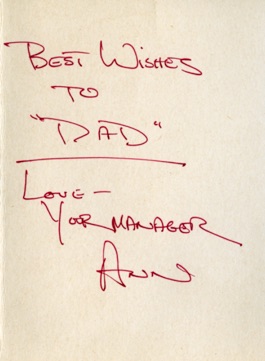 BEST WISHES
TO
"DAD"
LOVE —
YOUR MANAGER
ANN